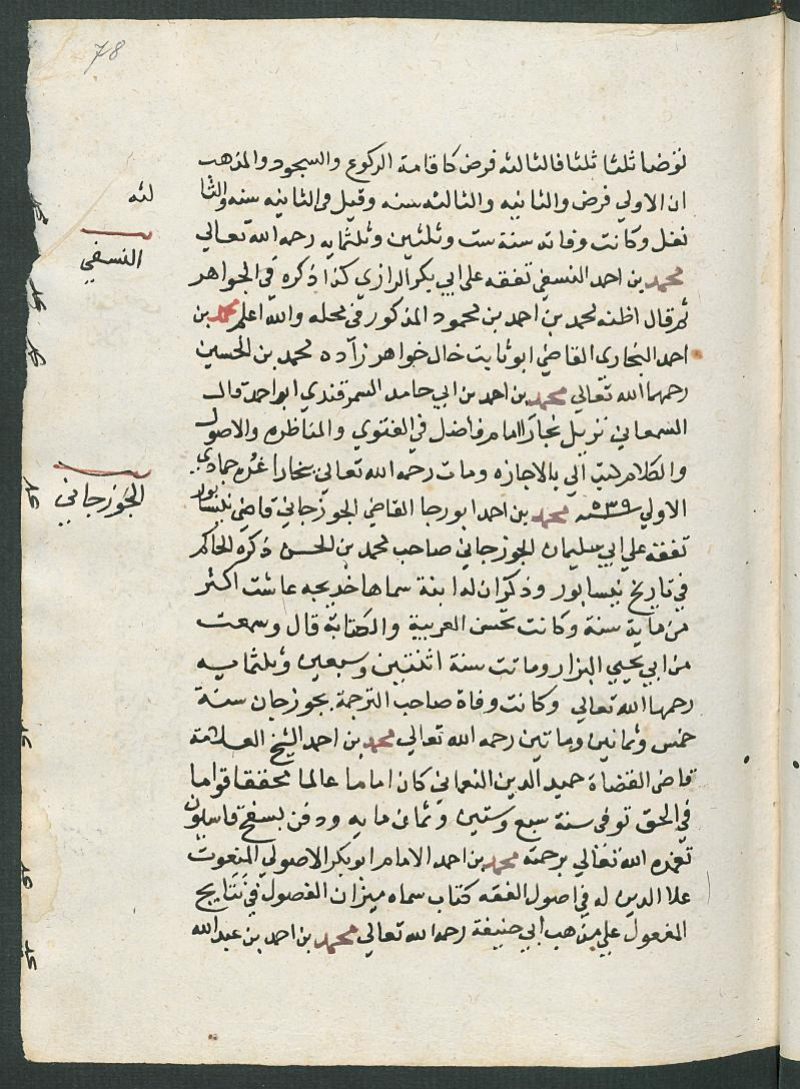 78
توضا ثلثا ثلثا فالثالثه فرض كاقامة الركوع والسجود والمذهب
ان الاولي فرض والثانيه والثالثه سنه وقيل في الثانيه سنه والثا
لثه
نفل وكانت وفاته سنة ست وثلثين وثلثمايه رحمه الله تعالي
النسفي
محمد بن احمد النسفي تفقه علي ابي بكر الرازي كذا ذكره في الجواهر
ثم قال اظنه محمد بن احمد بن محمود المذكور في محله والله اعلم محمد بن
احمد البخاري القاضي ابو ثابت خال خواهر زاده محمد بن الحسين
رحمهما الله تعالي محمد بن احمد بن ابي حامد السمرقندي ابو احمد قال
السمعاني نزيل بخارا امام فاضل في الفتوي والمناظره والاصول
والكلام كتب الي بالاجازه ومات رحمه الله تعالي ببخارا غره جمادي
الاولي سنه ٥٣٩ محمد بن احمد ابو رجا القاضي الجوزجاني قاضي نيسابور
الجوزجاني
تفقه علي ابي سليمان الجوزجاني صاحب محمد بن الحسن ذكره الحاكم
في تاريخ نيسابور وذكر ان له ابنة سماها خديجه عاشت اكثر
من ماية سنة وكانت تحسن العربية والكتابة قال وسمعت
من ابي يحيي البزار وماتت سنة اثنتين وسبعين وثلثمايه
رحمها الله تعالي وكانت وفاة صاحب الترجمة بجوزجان سنة
خمس وثمانين وماتين رحمه الله تعالي محمد بن احمد الشيخ العلامة
قاضي القضاة حميد الدين النعماني كان اماما عالما محققا قواما
في الحق توفي سنة سبع وستين وثمان مايه ودفن بسفح قاسيون
تغمده الله تعالي برحمته محمد بن احمد الامام ابو بكر الاصولي المنعوت
علا الدين له في اصول الفقه كتاب سماه ميزان الفصول في نتايج
المغعول علي مذهب ابي حنيفة رحمه الله تعالي محمد بن احمد بن عبد الله